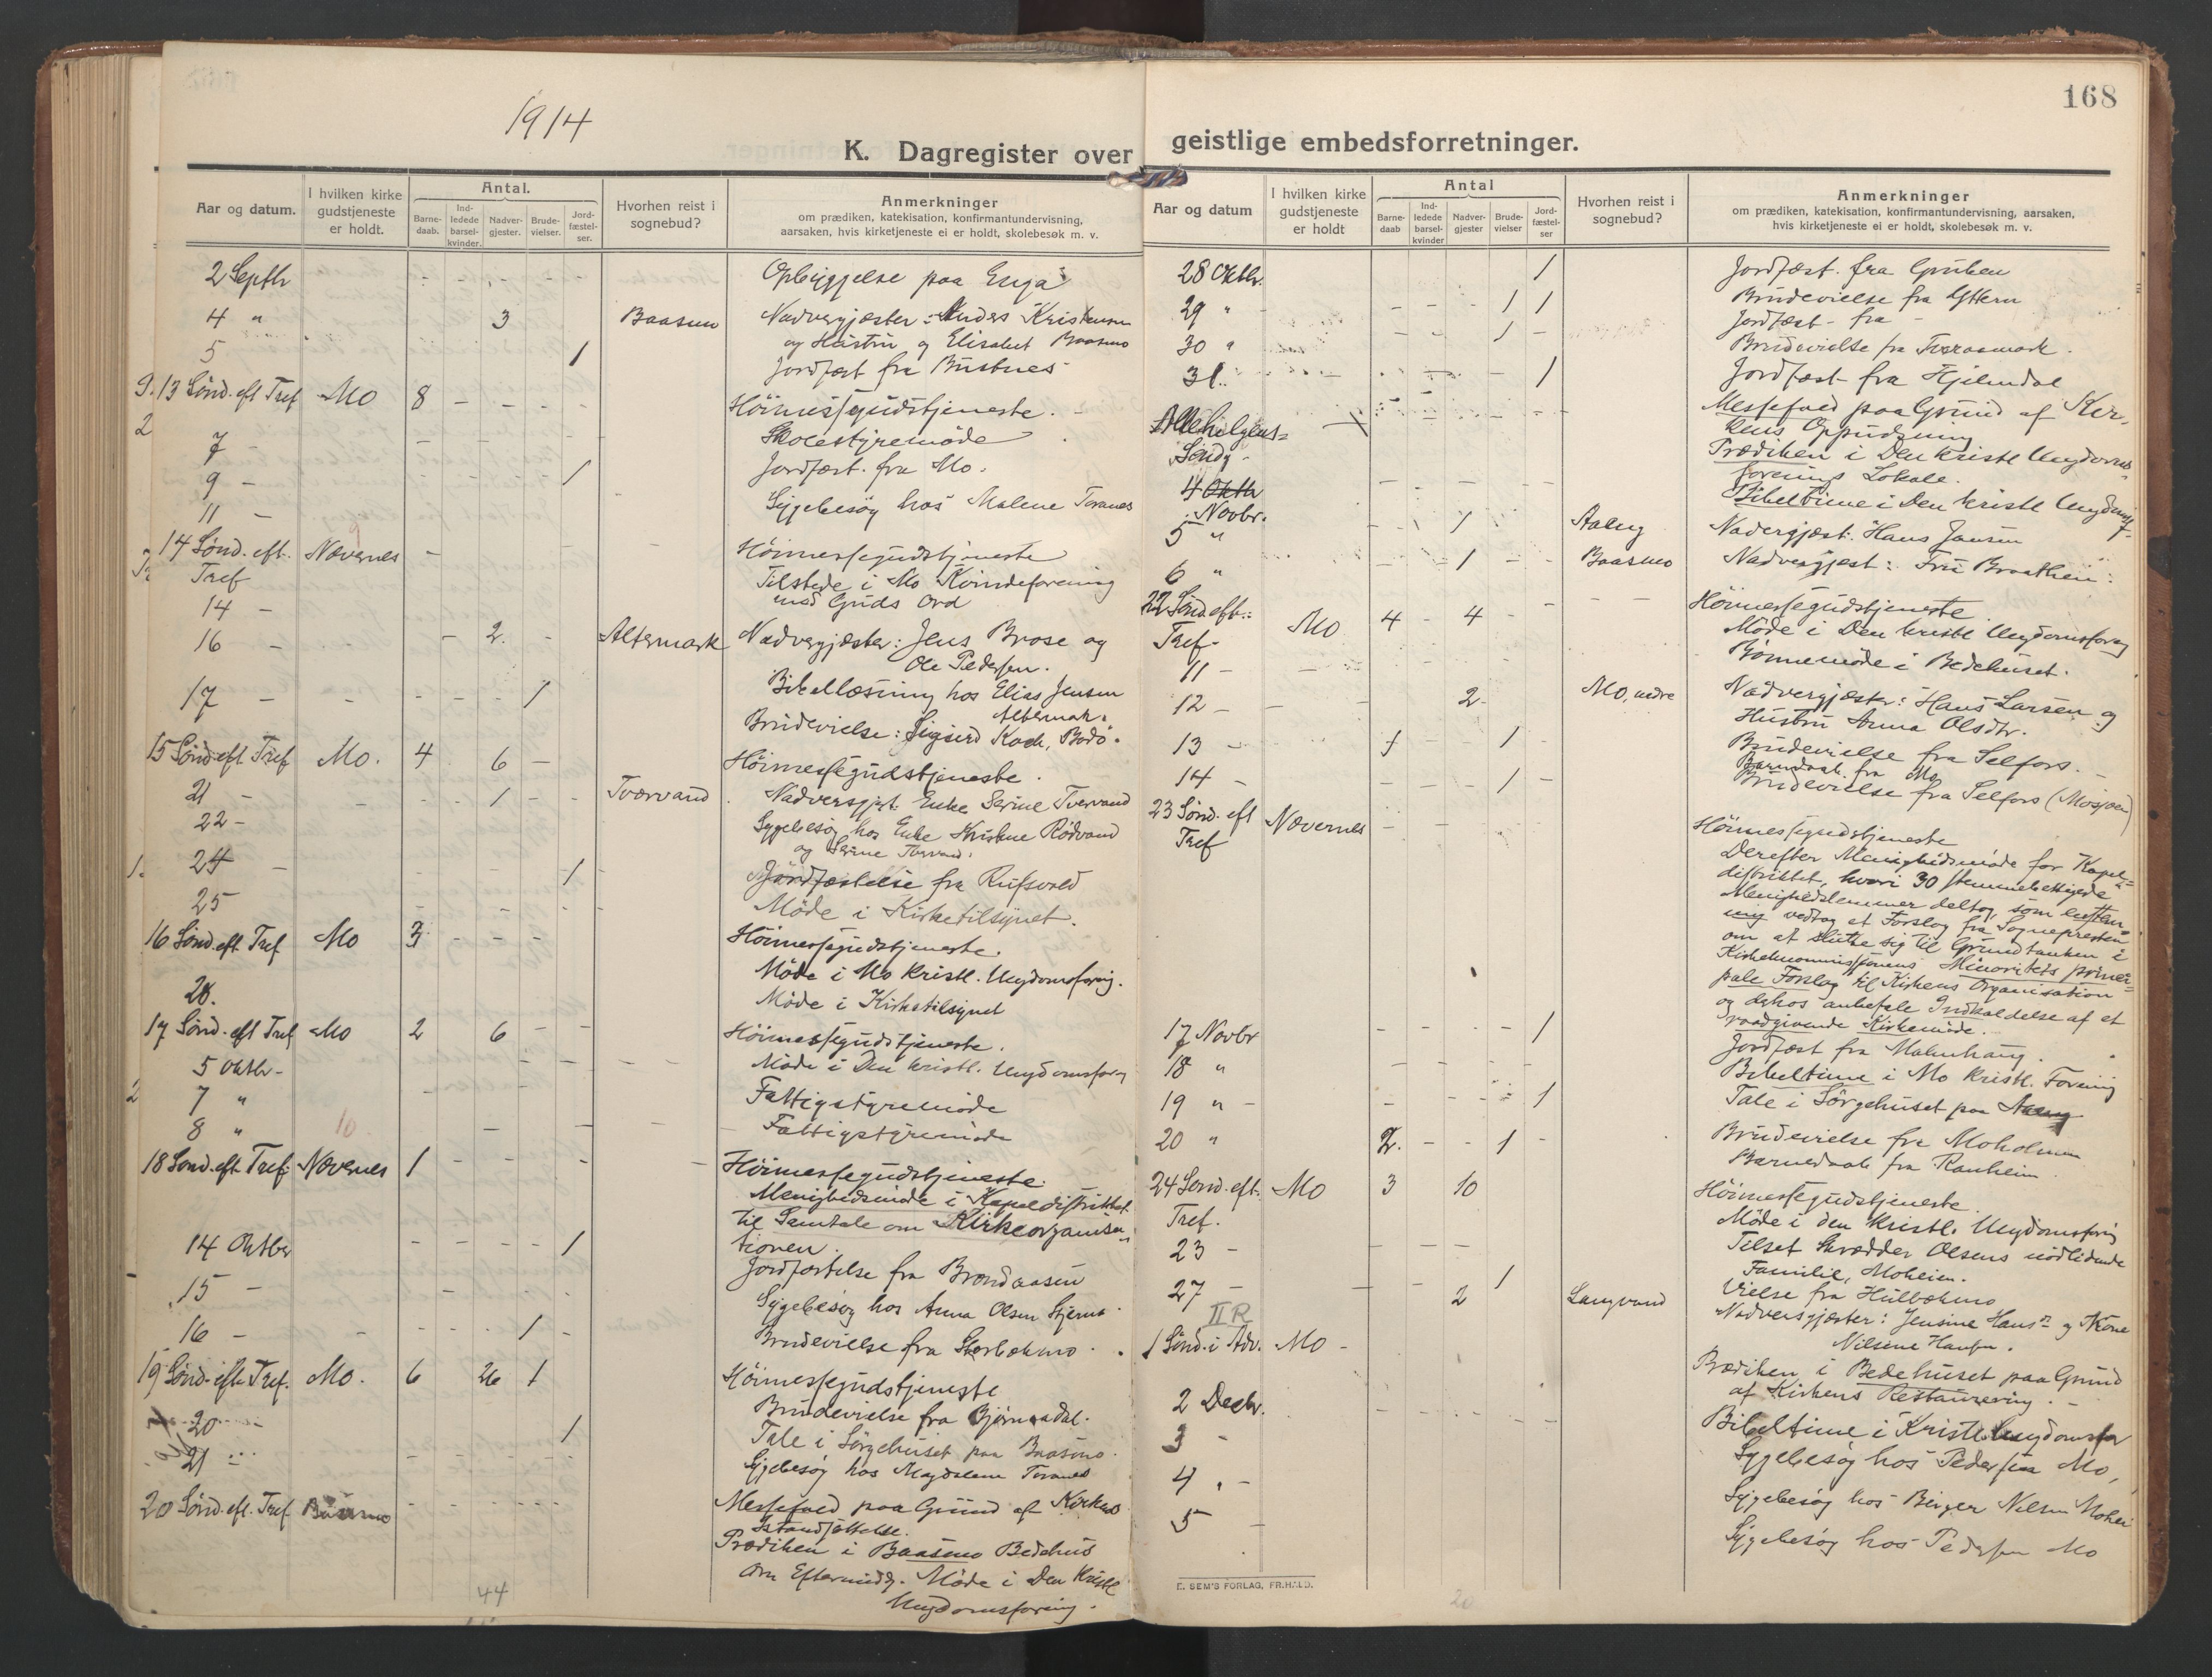 1914
K. Dagregister over
Aar og datum.
I hvilken kirke gudstjeneste er holdt.
Antal.
Barne-daab.
Ind-ledede barsel-kvinder.
Nadver-gjester.
Brude-vielser.
Jord-fæstel-ser.
Hvorhen reist i sognebud?
Anmerkninger
om prædiken, katekisation, konfirmantundervisning,
aarsaken, hvis kirketjeneste ei er holdt, skolebesøk m. v.
2 Septbr - - - - - Opbyggelse paa Enga
4 " 3 Baasmo Nadvergjæster: Anders Kristensen
og Hustru og Elisabet Baasmo
5 1 Jordfæst fra Busnes
13 Sønd. eft Tref Mo 8 - - - - Höimessegudstjeneste.
7 - Skolestyremöde
9 - 1 Jordfæst. fra Mo.
11 - Sygebesög hos Malene Toranes
14 Sønd. eft. Nævernes - Höimessegudstjeneste
Tref Tilstede i Mo Kvindeforening
14 - med Guds Ord
16 - 2. Altermark Nadvergjæster: Jens Brose og
Ole Pedersen.
17 - 1 Bibellæsning hos Elias Jensen
Altermark.
Brudevielse: Sigurd Koch, Bodö.
15 Sønd. eft Tref Mo. 4 - 6 - Höimessegudstjeneste.
21 - 1 Tværvand Nadvergjæst. Enke Serine Tvervand
22 - Sygebesög hos Enke Kristine Rödvand
og Serine Tvervand.
24 - 1 Jordfæstelse fra
25 Möde i Kirketilsynet.
16 Sønd. eft. Tref Mo 3 - - - Höimessegudstjeneste.
Möde i Mo Kristl. Ungdomsforng.
28. Möde i Kirketilsynet
17 Sønd. eft Tref Mo 2 6 - - Höimessegudstjeneste.
5 Oktbr - Möde i Den kristl. Ungdomsforng
7 " Fattigstyremöde
8 " 10 Fattigstyremöde
18 Sønd. eft Tref. Nævernes 1 - - - - Höimessegudstjeneste.
Menighedsmöde i Kapeldistriktet
til Samtale om Kirkeorganisa-
tionen.
14 Oktber 1 Jordfæstelse fra Brendaasen
15 - Sygebesög hos Anna Olsen
16 - 1 - Brudevielse fra
19 Sønd. eft. Tref. Mo. 6 26 1 Höimessegudstjeneste
Brudevielse fra Bjørnaadal.
20 - 1 Tale i Sörgehuset paa Baasmo.
21 Sygebesög hos Magdalene Toranes
20 Sønd. eft. Tref Baasmo - - - - - Messefald paa Grund af Kirkens
Istandsættelse.
Prædiken i Baasmo Bedehus
Om Eftermidd. Möde i Den Kristl
Ungdomsforeng.
44
168
geistlige embedsforretninger.
Aar og datum
I hvilken kirke gudstjeneste er holdt
Antal
Barne-daab
Ind-ledede barsel-kvinder
Nadver-gjester
Brude-vielser
Jord-fæstel-ser
Hvorhen reist i sognebud?
Anmerkninger
om prædiken, katekisation, konfirmantundervisning, aarsaken,
hvis kirketjeneste ei er holdt, skolebesøk m. v.
28 Oktbr. 1 Jordfæst. fra Gruben
29 " - - - 1 1 Brudevielse fra Ytteren
Jordfæst - fra -
30 " - - 1 - Brudevielse fra Tveraamark.
31. 1 Jordfæst - fra Hjelmdal
Allehelgens= Messefald paa Grund af Kir-
Søndg - kens Oppudsning
Prædiken i Den kristl Ungdoms-
forenings Lokale.
4 Oktbr Novbr. Bibeltime i Den kristl Ungdomsf-
5 " 1 Aaeng Nadvergjæst. Hans Jansen
6 " 1 - Baasmo Nadvergjæst: Fru Braathen.
22 Sønd eft: Mo 4 - 4 - - - Höimessegudstjeneste
Tref - Möde i Den kristl Ungdomsforng
11 - Bönnemöde i Bedehuset.
12 - 2 Mo, nedre Nadvergjæster: Hans Larsen og
Hustru Anna Olsdtr.
13 - 1 1 - Brudevielse fra Selfors. -
Barnedaab. fra Mo
14 - 1 - Brudevielse fra Selfors (Mosjøen)
23 Sønd. eft Nævernes - Höimessegudstjeneste
Tref Derefter Menighedsmöde for Kapel-
distriktet, hvori 30 stemmeberettigede
Menighedslemmer deltog, som enstem-
mig vedtog et Forslag fra Sognepresten
om at slutte sig til Grundtanken i
Kirkekommissionens Minoritets princi-
pale Forslag til Kirkens Organisation
og derhos anbefale Indkaldelse af et
raadgivende Kirkemöde.
17 Novbr - - - - 1 Jordfæst fra Malmhaug.
18 " Bibeltime i Mo kristl. Forening
19 " - 1 Tale i Sörgehuset paa Aaeng
20 " 2. - - 1 - Brudevielse fra Moholmen
Barnedaab fra Ranheim.
24 Sønd. eft. Mo 3 10 Höimessegudstjeneste.
Tref. Möde i den kristl. Ungdomsforng
23 - Tilset Skrædder Olsens nödlidende
Familie, Moheien.
27 - 1 Vielse fra
2 Langvand Nadvergjæster: Jensine Hansn og
Nilsine Hansen.
II R
1 Sønd. i Adv. Mo - Prædiken i Bedehuset paa Grund
af Kirkens Restaurering. -
2 Decbr. Bibeltime i Kristl Ungdomsfor
3 - Sygebesög hos Pedersen Mo,
4 " - Sygebesög hos Birger Nilsen Mohei
5 - Sygebesög hos Pedersen Mo
E. SEM'S FORLAG, FR.HALD.
20